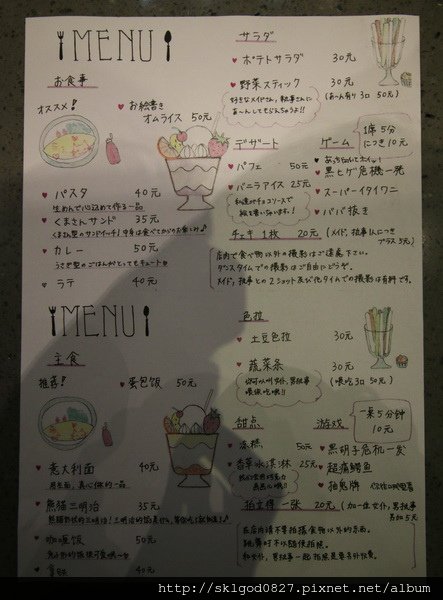 MENU
お食事
オススメ!
♥ お絵書き
オムライス 50元
♥ パスタ 40元
生めんで心込めて作る一品
♥ くまさんサンド 35元
くまさん型のサンドイッチ!中身は食べてからのお楽しみ♪
♥ カレー 50元
うさぎ型のごはんがとってもキュート
♥ ラテ 40元
サラダ
♥ ポテトサラダ 30元
♥ 野菜スティック 30元
(あーん有り 3口 50元)
好きなメイドさん、執事さんに
あーんしてもらえちゃうよ!!
デザート
♥ パフェ 50元
♥ バニラアイス 25元
私達がチョコソースで
絵を書いちゃいます!
ゲーム
1席 5分
につき 10元
♥ 黒ヒゲ危機一発
♥ スーパーイタイワニ
♥ ババ抜き
チェキ 1枚 20元 (メイド、執事1人につき
プラス5元)
店内で食べ物以外の撮影はご遠慮下さい。
ダンスタイムでの撮影はご自由にどうぞ。
メイド、執事との2ショット及び他タイムでの撮影は有料です。
MENU
主食
推荐!
♥ 蛋包饭 50元
♥ 意大利面 40元
♥ 熊猫三明治 35元
♥ 咖喱饭 50元
♥ 拿铁 40元
色拉
♥ 土豆色拉 30元
♥ 蔬菜条 30元
(喂吃 3口 50元)
甜点
♥ 冻糕 50元
♥ 香草冰淇淋 25元
游戏
一桌5分钟
10元
♥ 黑胡子危机一发
♥ 超痛鳄鱼
♥ 抽鬼牌
拍立得 一张 20元 (加一位女仆,男执事
另加5元)
在店内请不要拍摄食物以外的东西。
跳舞时可以随便拍照。
和女仆,男执事一起拍照是要另外收费。
http://sklgod0827.pixnet.net/album